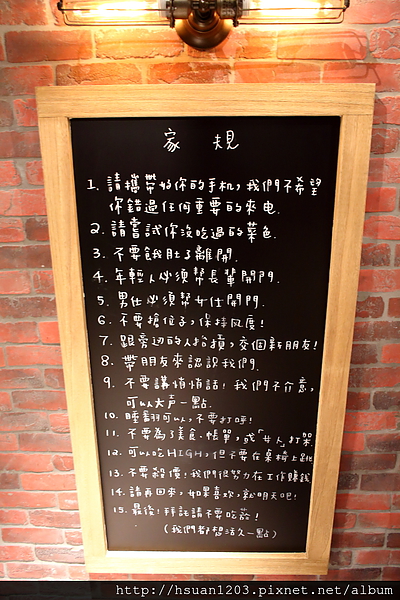 家 規
1. 請攜帶好你的手机，我們不希望
你錯過任何重要的來电.
2. 請嘗試你沒吃過的菜色.
3. 不要餓肚子離開.
4. 年輕人必須幫長輩開門.
5. 男仕必須幫女仕開門.
6. 不要搶位子，保持风度!
7. 跟旁边的人抬摃，交個新朋友!
8. 帶朋友來認識我們.
9. 不要講悄悄話! 我們不介意，
可以大声一點.
10. 睡翻可以，不要打呼!
11. 不要為了美食、帳單，或「女人」打架
12. 可以吃HIGH，但不要在桌椅上跳
13. 不要殺價! 我們很努力在工作賺錢
14. 請再回來，如果喜欢，就明天吧!
15. 最後! 拜託請不要吃菸!
(我們都想活久一點)
http://hsuan1203.pixnet.net/album